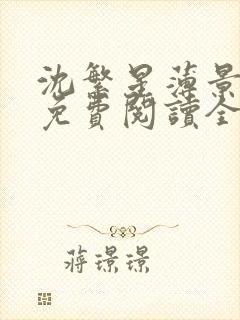 沈繁星薄景
免費閱讀全
蔣璟璟